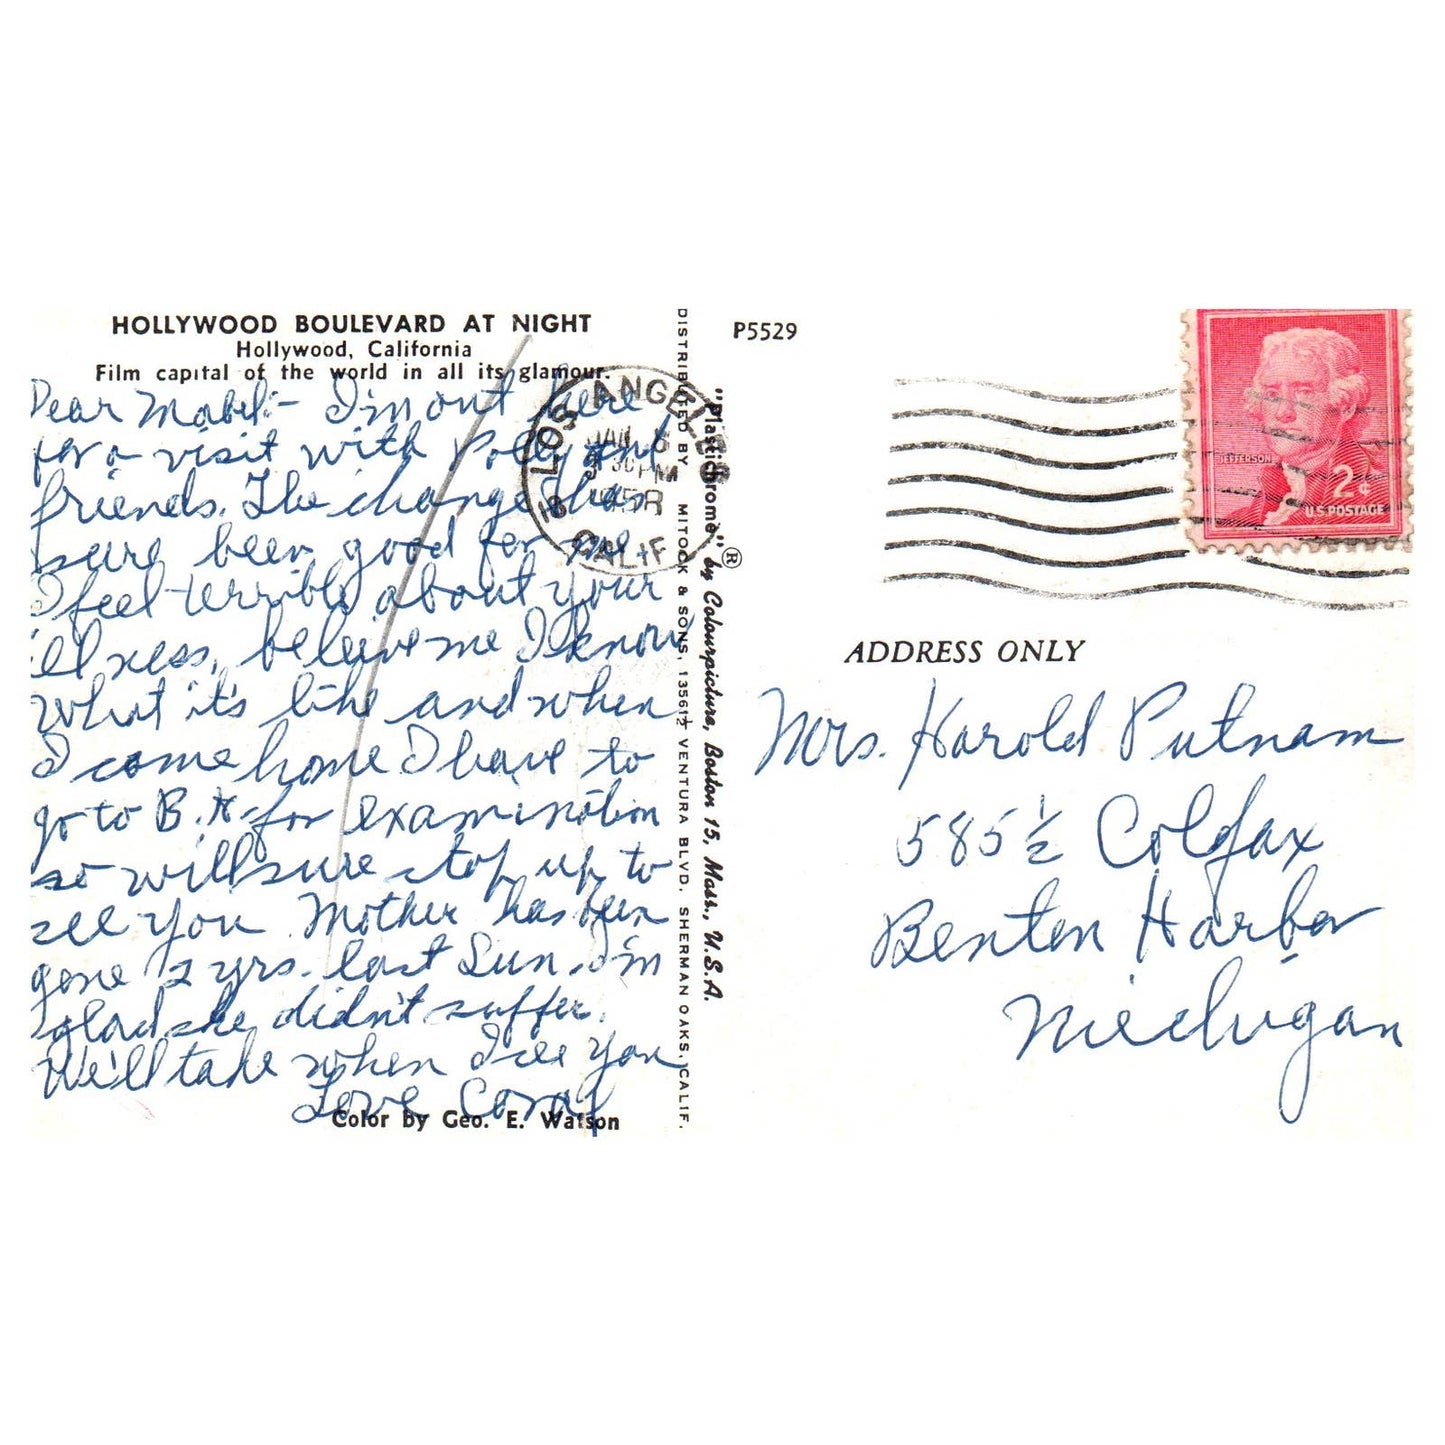 HOLLYWOOD BOULEVARD AT NIGHT
Hollywood, California
Film capital of the world in all its glamour.
Dear Mabel:- I'm out here
for a visit with Polly and
friends. The change has
sure been good for me.
I feel terrible about your
illness, beleive me I know
what it's like and when
I come home I have to
go to B.H. for examination
so will sure stop up to
see you. Mother has been
gone 2 yrs. last Sun. I'm
glad she didn't suffer.
We'll take when I see you
Love Coral
Color by Geo. E. Watson
LOS ANGELES
JAN
30 PM
CALIF
DISTRIBUTED BY MITOCK & SONS, 13561½ VENTURA BLVD. SHERMAN OAKS, CALIF.
"Plastichrome"® by Colourpicture, Boston 15, Mass., U.S.A.
P5529
JEFFERSON
2¢
U.S. POSTAGE
ADDRESS ONLY
Mrs. Harold Putnam
585½ Colfax
Benton Harbor
Michigan